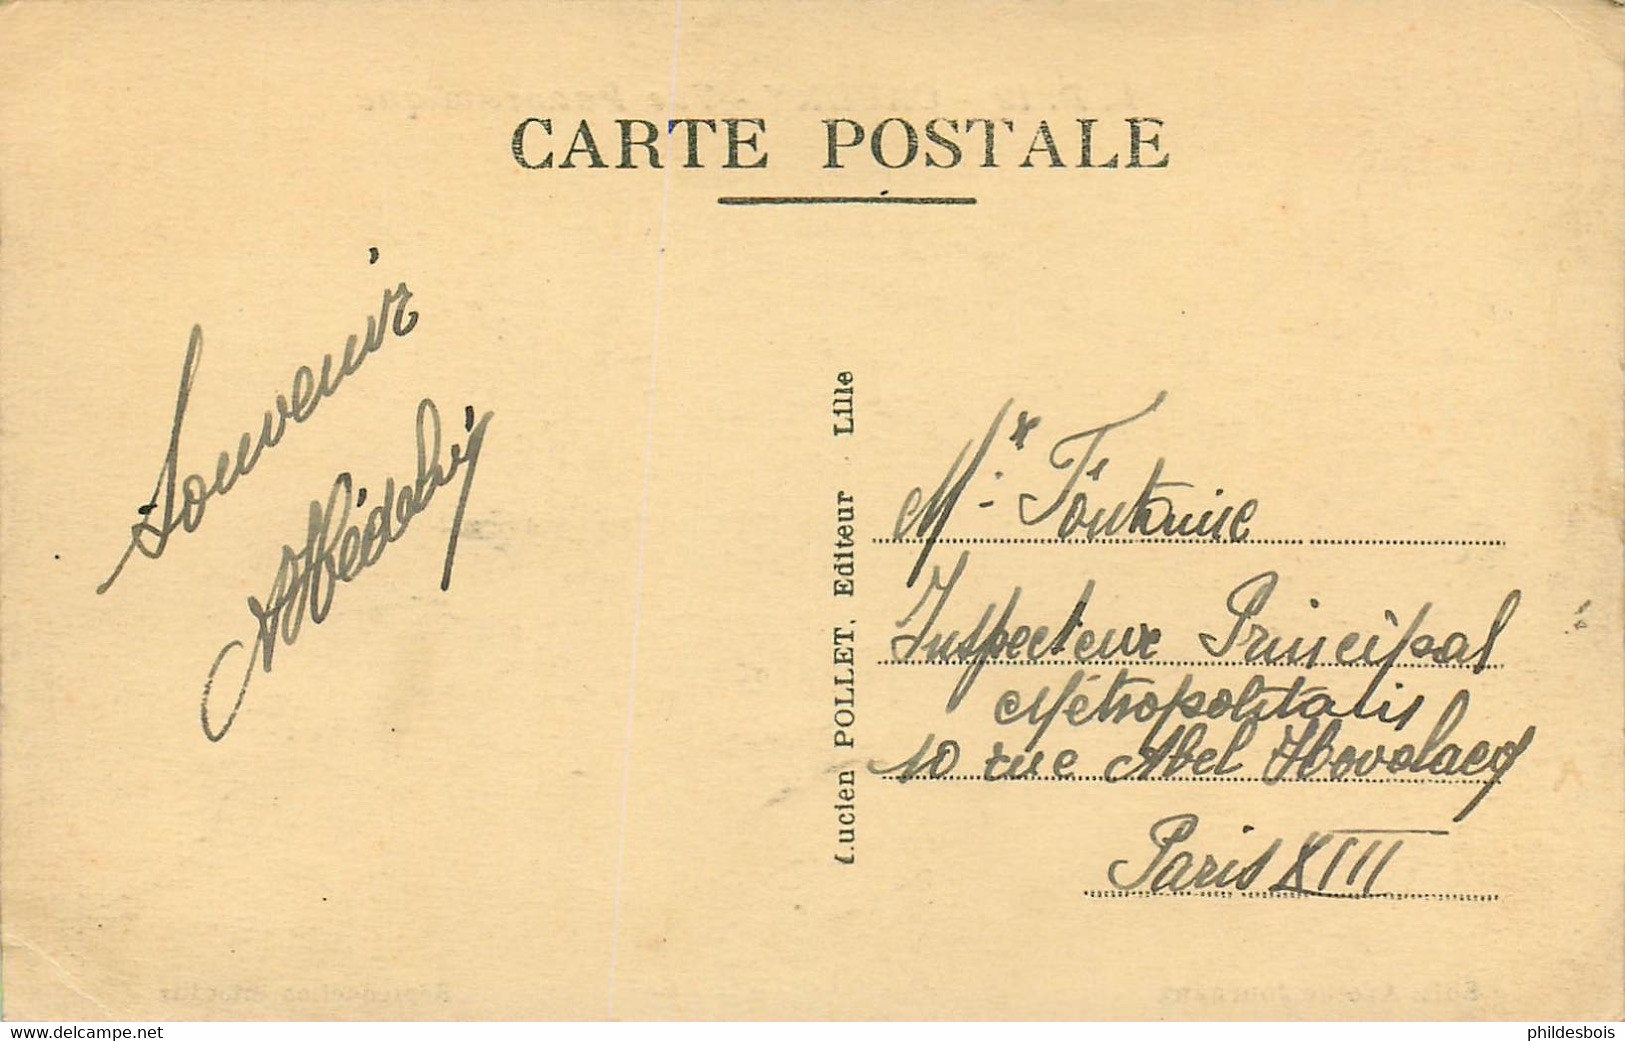 CARTE POSTALE
Souvenir
Lucien POLLET. Editeur Lille
Mr. Fontaine
Inspecteur Principal
Métropolitain
10 rue Abel Hovelacq
Paris XIII
delcampe.net
phildesbois